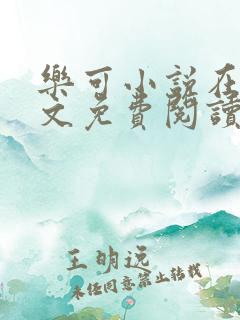 樂可小說在
文免費閱讀
王明远
未任同意禁止转载